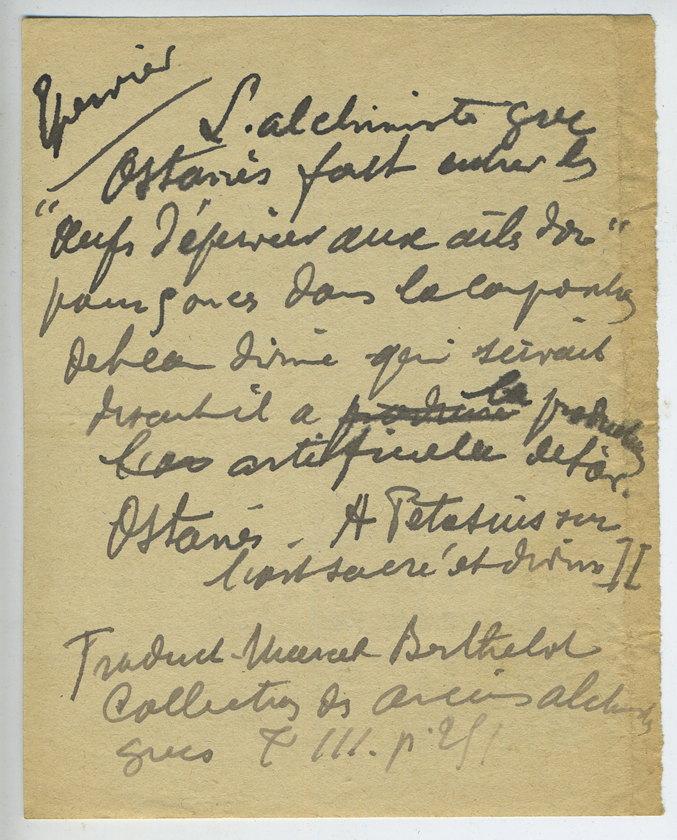 Epervier
L'alchimiste grec
Ostanès fait entrer les
"œufs d'épervier aux ails d'or"
dans la composition
de l'eau divine qui servait
disait-il a la production
artificielle de l'or.
Ostanès - A Petasius sur
l'art sacré et divin] [
Traduct. Marcel Berthelot
Collection des anciens alchimistes
grecs T III. p. 251